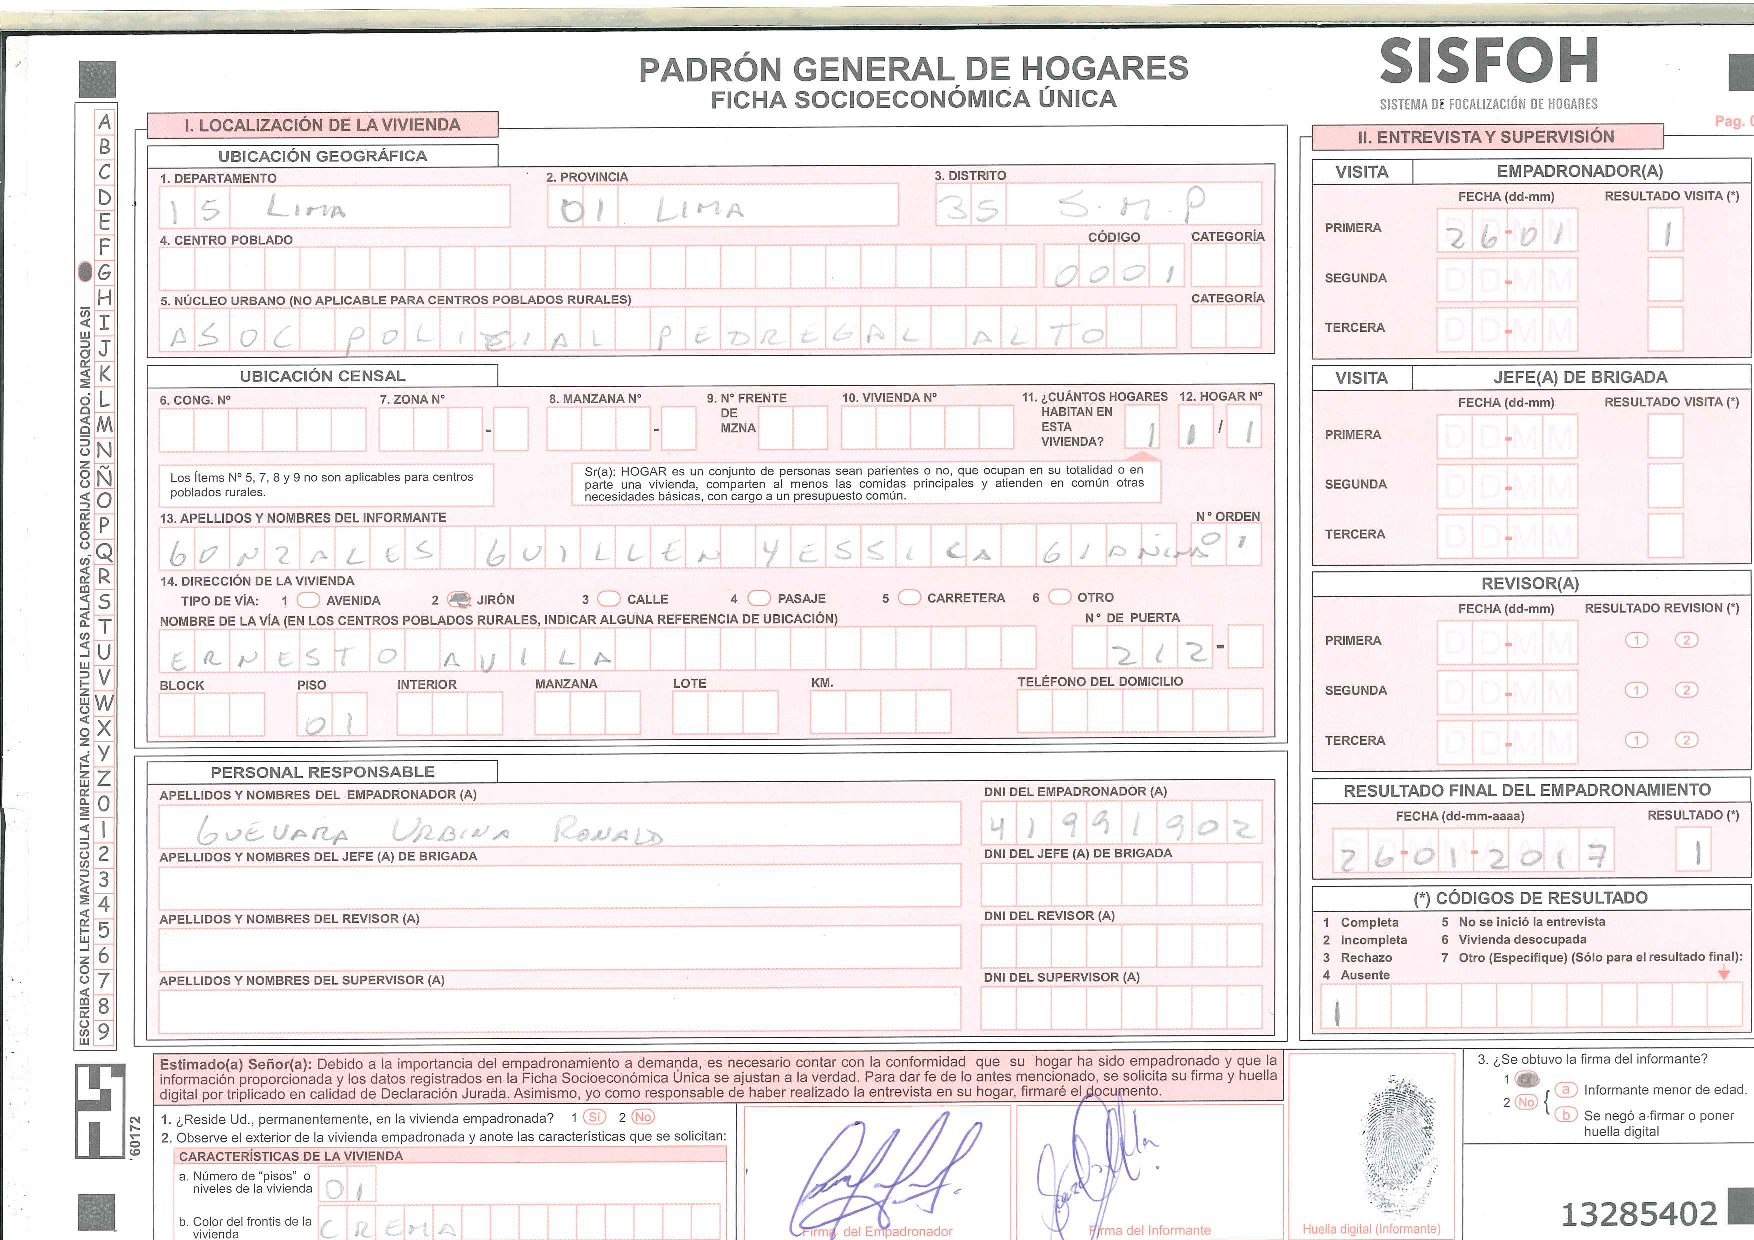 PADRÓN GENERAL DE HOGARES
FICHA SOCIOECONÓMICA ÚNICA
SISFOH
SISTEMA DE FOCALIZACIÓN DE HOGARES
Pag. 0
ESCRIBA CON LETRA MAYUSCULA IMPRENTA. NO ACENTUE LAS PALABRAS, CORRIJA CON CUIDADO. MARQUE ASI
A
B
C
D
E
F
G
H
I
J
K
L
M
N
Ñ
O
P
Q
R
S
T
U
V
W
X
Y
Z
0
1
2
3
4
5
6
7
8
9
I. LOCALIZACIÓN DE LA VIVIENDA
UBICACIÓN GEOGRÁFICA
1. DEPARTAMENTO 2. PROVINCIA 3. DISTRITO
15 LIMA 01 LIMA 35 S.M.P
4. CENTRO POBLADO CÓDIGO CATEGORÍA
0001
5. NÚCLEO URBANO (NO APLICABLE PARA CENTROS POBLADOS RURALES) CATEGORÍA
ASOC POLICIAL PEDREGAL ALTO
UBICACIÓN CENSAL
6. CONG. Nº 7. ZONA Nº 8. MANZANA Nº 9. Nº FRENTE DE MZNA 10. VIVIENDA Nº 11. ¿CUÁNTOS HOGARES HABITAN EN ESTA VIVIENDA? 12. HOGAR Nº
1 1 / 1
Los Ítems Nº 5, 7, 8 y 9 no son aplicables para centros poblados rurales.
Sr(a): HOGAR es un conjunto de personas sean parientes o no, que ocupan en su totalidad o en
parte una vivienda, comparten al menos las comidas principales y atienden en común otras
necesidades básicas, con cargo a un presupuesto común.
13. APELLIDOS Y NOMBRES DEL INFORMANTE Nº ORDEN
GONZALES GUILLEN YESSICA 01
14. DIRECCIÓN DE LA VIVIENDA
TIPO DE VÍA: 1 AVENIDA 2 JIRÓN 3 CALLE 4 PASAJE 5 CARRETERA 6 OTRO
NOMBRE DE LA VÍA (EN LOS CENTROS POBLADOS RURALES, INDICAR ALGUNA REFERENCIA DE UBICACIÓN) Nº DE PUERTA
ERNESTO AVILA 212-
BLOCK PISO INTERIOR MANZANA LOTE KM. TELÉFONO DEL DOMICILIO
01
PERSONAL RESPONSABLE
APELLIDOS Y NOMBRES DEL EMPADRONADOR (A) DNI DEL EMPADRONADOR (A)
GUEVARA URBINA RONALD 41991902
APELLIDOS Y NOMBRES DEL JEFE (A) DE BRIGADA DNI DEL JEFE (A) DE BRIGADA
APELLIDOS Y NOMBRES DEL REVISOR (A) DNI DEL REVISOR (A)
APELLIDOS Y NOMBRES DEL SUPERVISOR (A) DNI DEL SUPERVISOR (A)
II. ENTREVISTA Y SUPERVISIÓN
VISITA EMPADRONADOR(A)
FECHA (dd-mm) RESULTADO VISITA (*)
PRIMERA 26-01 1
SEGUNDA DD-MM
TERCERA DD-MM
VISITA JEFE(A) DE BRIGADA
FECHA (dd-mm) RESULTADO VISITA (*)
PRIMERA DD-MM
SEGUNDA DD-MM
TERCERA DD-MM
REVISOR(A)
FECHA (dd-mm) RESULTADO REVISION (*)
PRIMERA DD-MM 1 2
SEGUNDA DD-MM 1 2
TERCERA DD-MM 1 2
RESULTADO FINAL DEL EMPADRONAMIENTO
FECHA (dd-mm-aaaa) RESULTADO (*)
26-01-2017 1
(*) CÓDIGOS DE RESULTADO
1 Completa 5 No se inició la entrevista
2 Incompleta 6 Vivienda desocupada
3 Rechazo 7 Otro (Especifique) (Sólo para el resultado final):
4 Ausente
1
Estimado(a) Señor(a): Debido a la importancia del empadronamiento a demanda, es necesario contar con la conformidad que su hogar ha sido empadronado y que la
información proporcionada y los datos registrados en la Ficha Socioeconómica Única se ajustan a la verdad. Para dar fe de lo antes mencionado, se solicita su firma y huella
digital por triplicado en calidad de Declaración Jurada. Asimismo, yo como responsable de haber realizado la entrevista en su hogar, firmaré el documento.
60172
1. ¿Reside Ud., permanentemente, en la vivienda empadronada? 1 Sí 2 No
2. Observe el exterior de la vivienda empadronada y anote las características que se solicitan:
CARACTERÍSTICAS DE LA VIVIENDA
a. Número de "pisos" o niveles de la vivienda 01
b. Color del frontis de la vivienda CREMA
Firma del Empadronador
Firma del Informante
Huella digital (Informante)
3. ¿Se obtuvo la firma del informante?
1
2 No
a Informante menor de edad.
b Se negó a firmar o poner huella digital
13285402